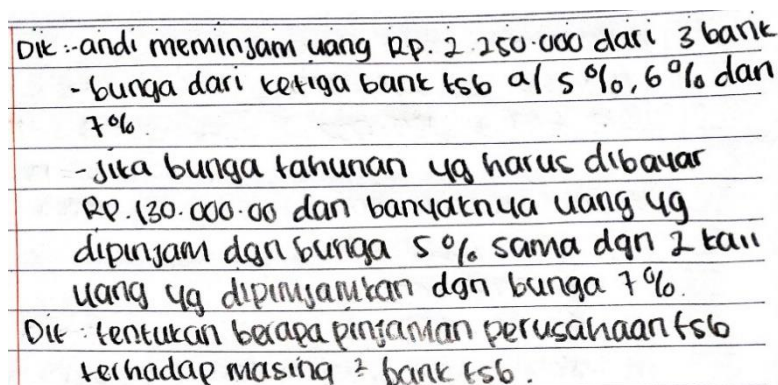 Dik :-andi meminjam uang Rp. 2.250.000 dari 3 bank
- bunga dari ketiga bank tsb al 5%, 6% dan
7%.
- Jika bunga tahunan yg harus dibayar
RP.130.000.00 dan banyaknya uang yg
dipinjam dgn bunga 5% sama dgn 2 kali
uang yg dipinjamkan dgn bunga 7%.
Dit : tentukan berapa pinjaman perusahaan tsb
terhadap masing ² bank tsb.